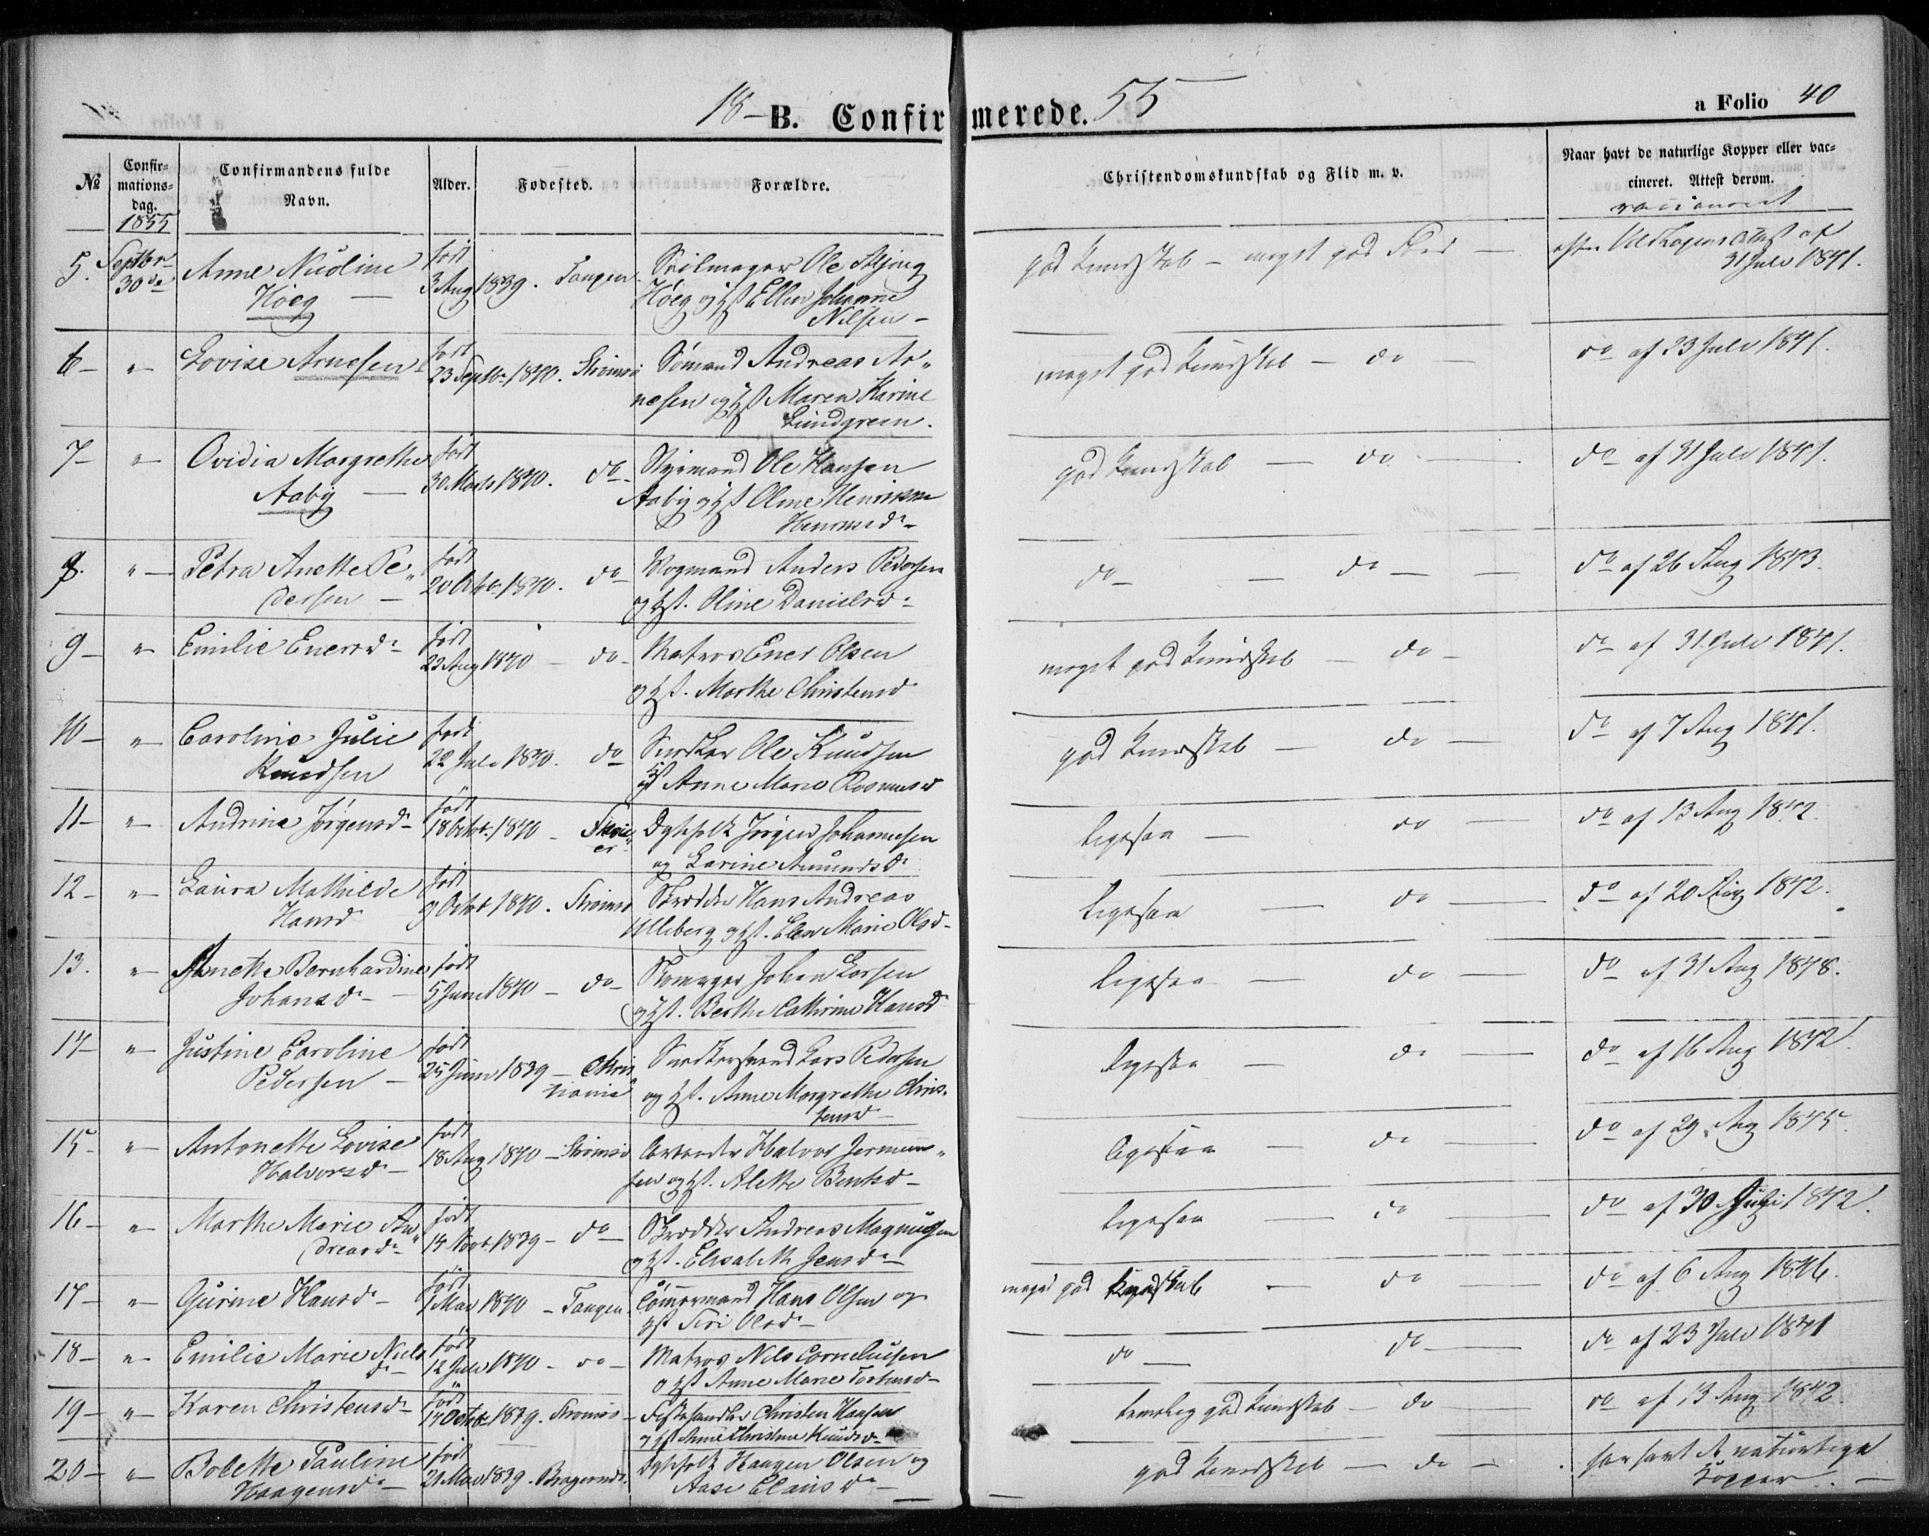 18- B. Confirmerede. 55
a Folio 40
№ Confirmationsdag. Confirmandens fulde Navn. Alder. Fødested. Forældre. Christendomskundskab og Flid m. v. Naar havt de naturlige Kopper eller vaccineret. Attest derom.
1855 vaccineret
5. Septbr 30de Anne Nicoline Høeg født 3 Aug 1839. Tangen. Seilmager Ole
Høeg og Hst Ellen Johanne Nilsen god Kundskab - meget god Flid - 31 Juli 1841.
6 " Lovise Arnesen født 23 Septbr 1840. Strømsø Sømand Andreas Arnesen og Hst Maren Karine Lundgreen. meget god Kundskab - do - do af 23 Juli 1841.
7 " Ovidia Margrethe Aaby født 30 Marts 1840. do Styrmand Ole Hansen Aaby og Hst Oline god Kundskab - do - do af 31 Juli 1841.
8. " Petra Anette Pedersen født 20 Octbr 1840. do Vogmand Anders Pedersen og Hst. Oline Danielsd. do - do - do af 26 Aug 1843.
9 " Emilie Enersd. født 23 Aug 1840 - do Matros Ener Olsen og Hst. Marthe Christensd meget god Kundskab - do - do af 31 Juli 1841.
10 " Caroline Julie Knudsen født 22 Juli 1840. do Ole Knudsen og Hst Anne Marie Rasmusd god Kundskab - do - do af 7 Aug 1841.
11 " Andrine Jørgensd. født 18 Octbr. 1840 - Jørgen Johannesen og Larine Amundsd. ligesaa - do - do af 13 Aug 1842.
12 " Laura Mathilde Hansd født 9 Octbr 1840. Strømsø Skrædder Hans Andreas Ulleberg og Hst. Elen Marie Olsd ligesaa - do - do af 20 Aug 1842.
13. " Anette Bernhardine Johansd. født 5 Juni 1840 - do Skomager Johan Larsen og Hst. Berthe Cathrine Hansd ligesaa - do - do af 31 Aug 1848.
14 " Justine Caroline Pedersen født 25 Juni 1839 - Christiania Lars Pedersen og Hst. Anne Margrethe Christensd ligesaa - do - do af 16 Aug 1842.
15 " Antonette Lovise Halvorsd. født 18 Aug 1840 - Strømsø Arbeider Halvor og Hst. Alette Bentsd ligesaa - do - do af 29 Aug 1845.
16 " Marthe Marie Andreasd. født 14 Novb. 1839 - do Skrædder Andreas Magnusen og Hst. Elisabeth Jensd. ligesaa - do - do af 30 Juli 1842.
17 " Gurine Hansd. født Mai 1840 - Tangen. Tømmermand Hans Olsen og Hst Siri Olsd. meget god Kundskab - do - do af 6 Aug 1846.
18 " Emilie Marie Nielsd. født 12 Juli 1840 - do Matros Nils Corneliusen og Hst Anne Marie do - do - do af 23 Juli 1841
19 " Karen Christensd. født 17 Octbr 1839. Strømsø - Christen Hansen og Hst Anne Christine Knudsd. temelig god Kundskab - do - do af 13 Aug 1842.
20 " Bolette Pauline Haagensd. født 21 Mai 1839. Bragernes. Haagen Olsen og Aase Clausd. god Kundskab - do - har havt de naturlige Kopper.